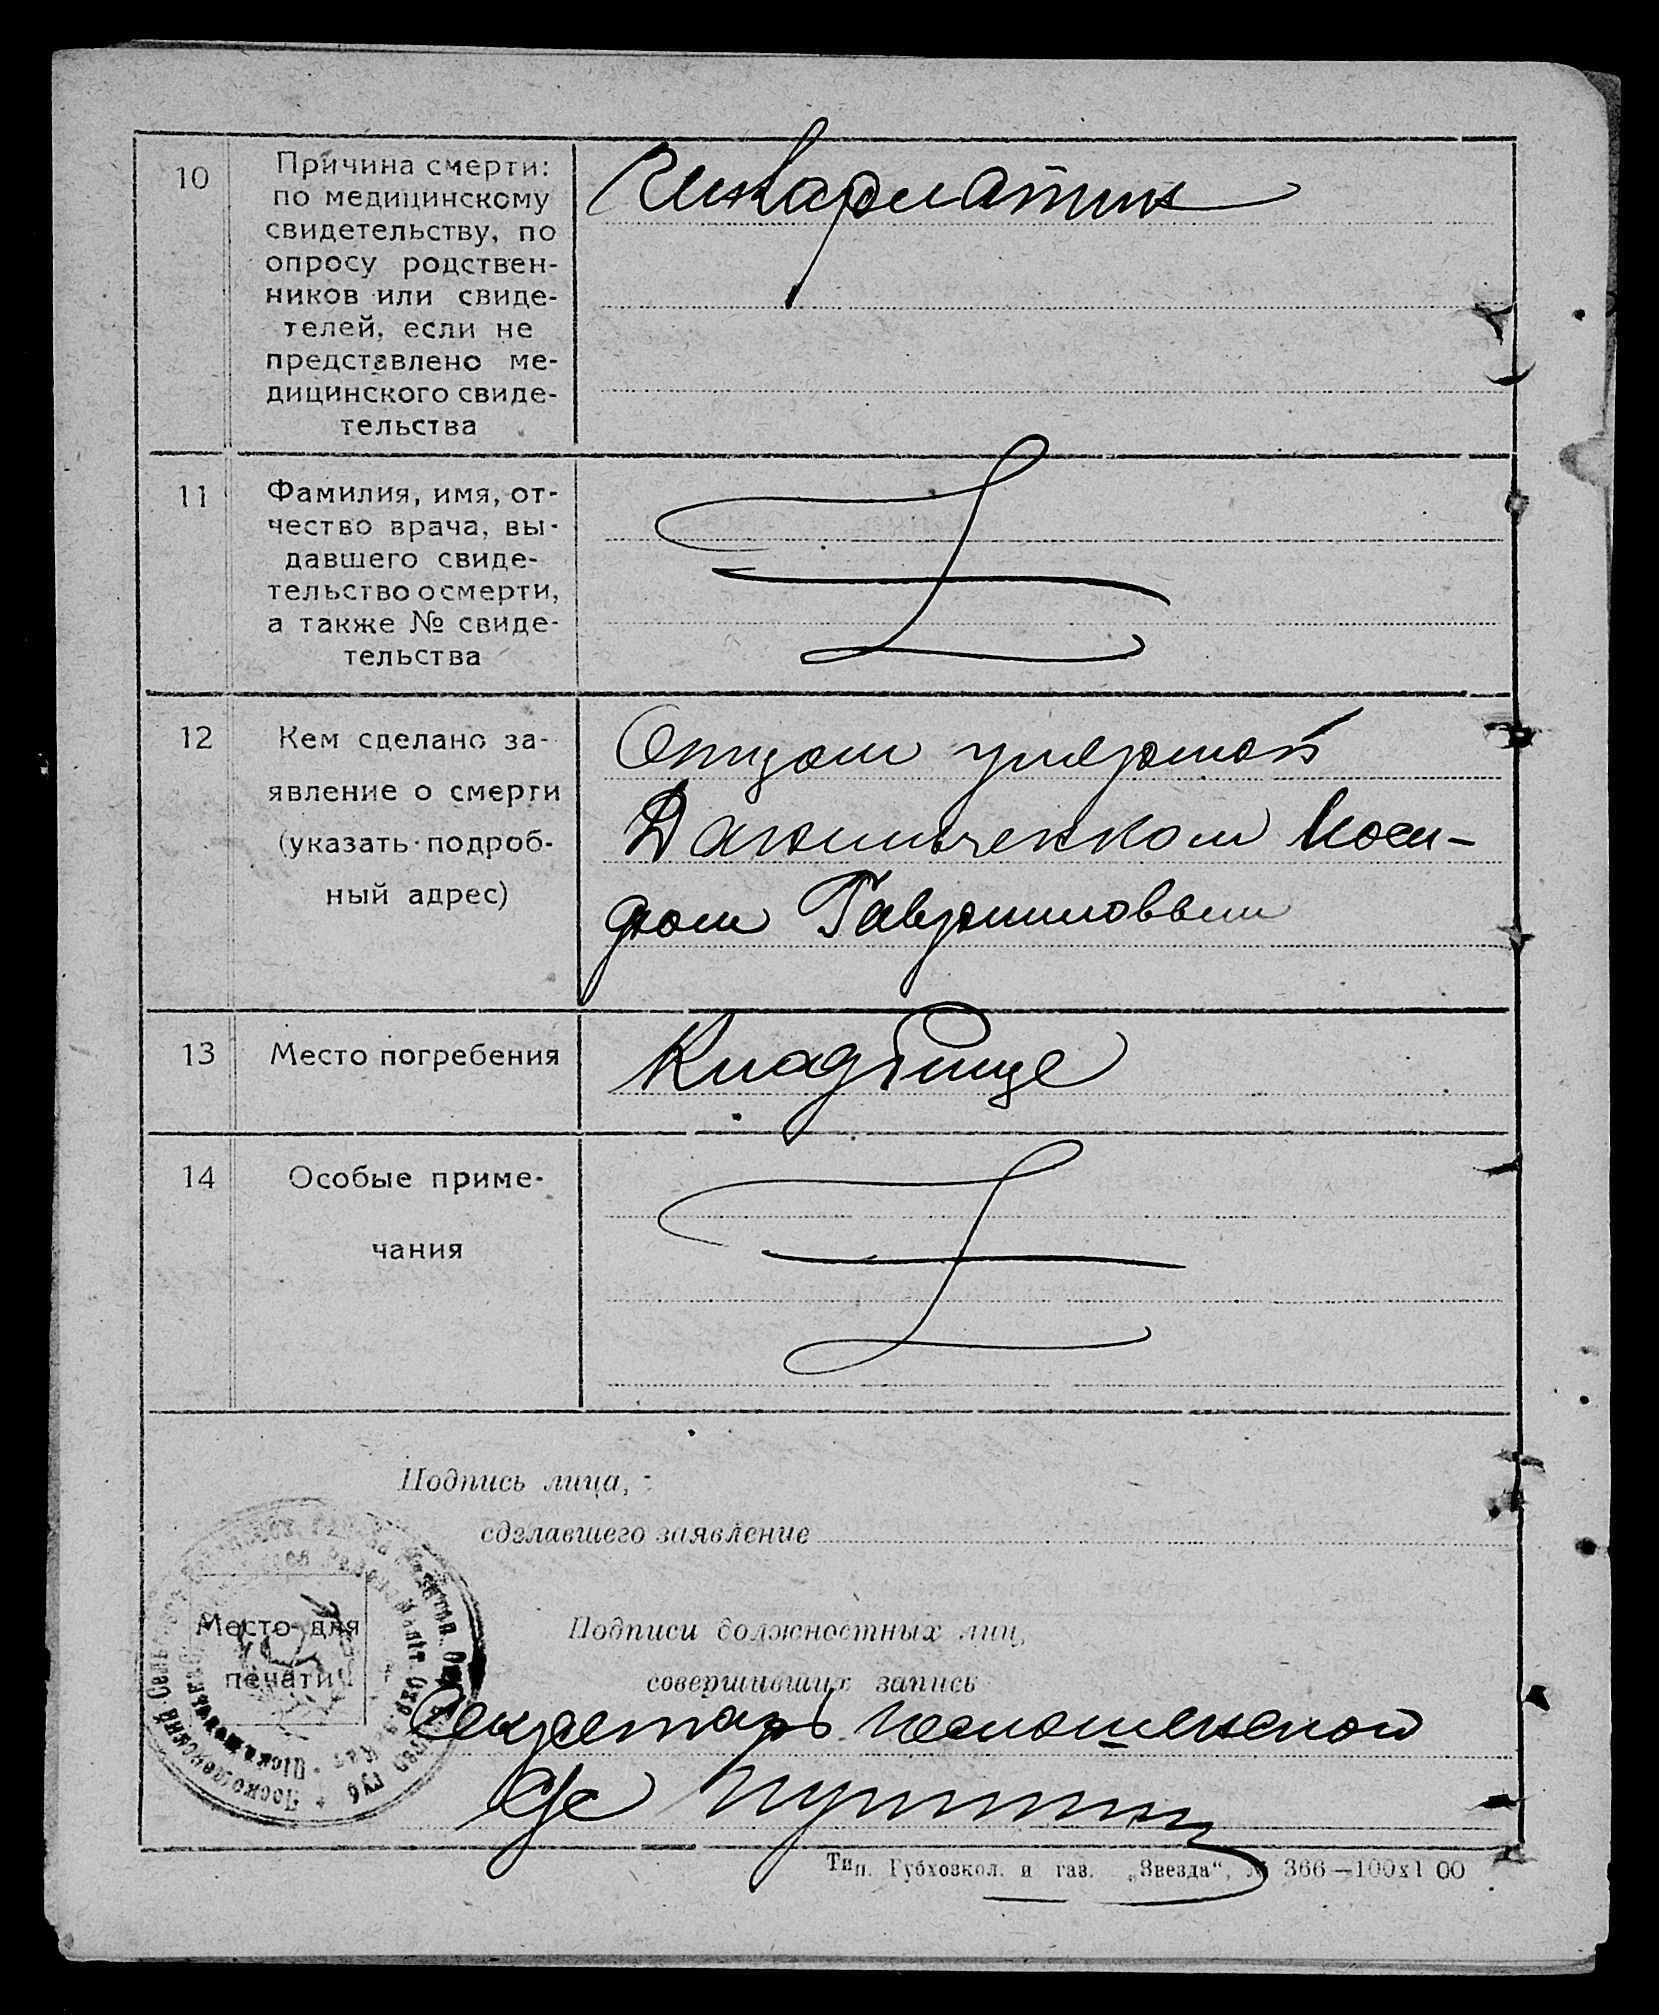 10
Причина смерти:
по медицинскому
свидетельству, по
опросу родствен-
ников или свиде-
телей, если не
представлено ме-
дицинского свиде-
тельства
11
Фамилия, имя, от-
чество врача, вы-
давшего свиде-
тельство о смерти,
а также № свиде-
тельства
12
Кем сделано за-
явление о смерти
(указать подроб-
ный адрес)
Отцом умершей
Данильченком
Гавриловвым
13
Место погребения
Кладбище
14
Особые приме-
чания
Подпись лица,
сделавшего заявление
Место для
печати
Подписи должностных лиц,
совершивших запись
Секретарь
с/с
Тип. Губхозкол. и газ. „Звезда“, № 366—100х1 00